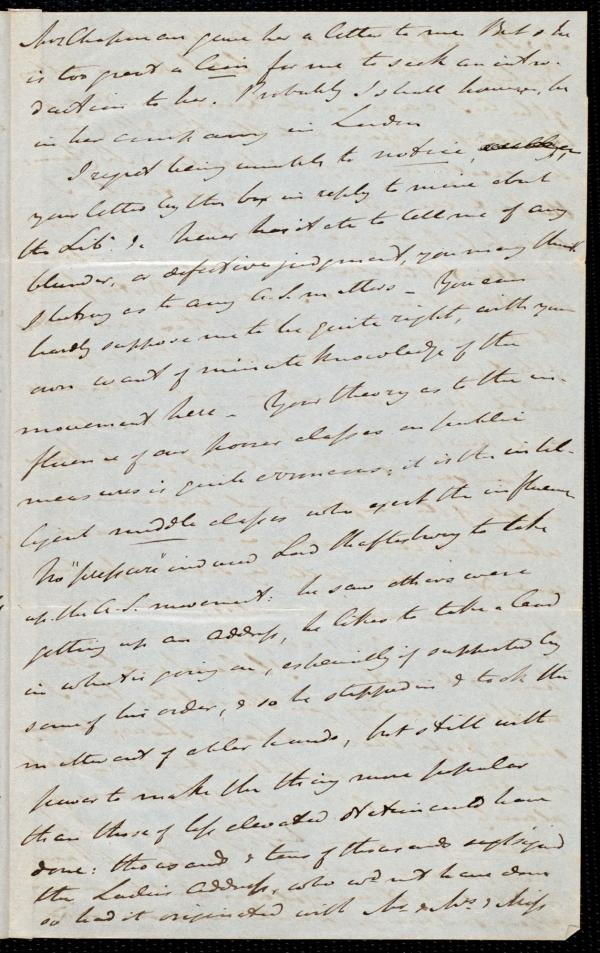 Mrs Chapman gave her a letter to me But she
is too great a lion for me to seek an intro-
duction to her. Probably I shall however, be
in her company in London
I regret being unable to notice,
your letter by this box in reply to mine about
the Lib. &c Never hesitate to tell me of any
blunder, or defective judgment, you may think
I betray as to any A.S. matters - You can
hardly suppose me to be quite right, with your
own want of minute knowledge of the
movement here - Your theory as to the in-
fluence of our classes on public
measures is quite erroneous: it is the intel-
ligent middle classes who exert the influence
No "pressure" induced Lord Shaftesbury to take
up the A.S. movement: he saw others were
getting up an address, he likes to take a lead
in what is going on, especially if supported by
some of his order, & so he stepped in & took the
matter out of abler hands, but still with
power to make the thing more popular
than those of less elevated station could have
done: thousands & tens of thousands
the Ladies Address, who wd not have done
so had it originated with Mr & Mrs & Miss